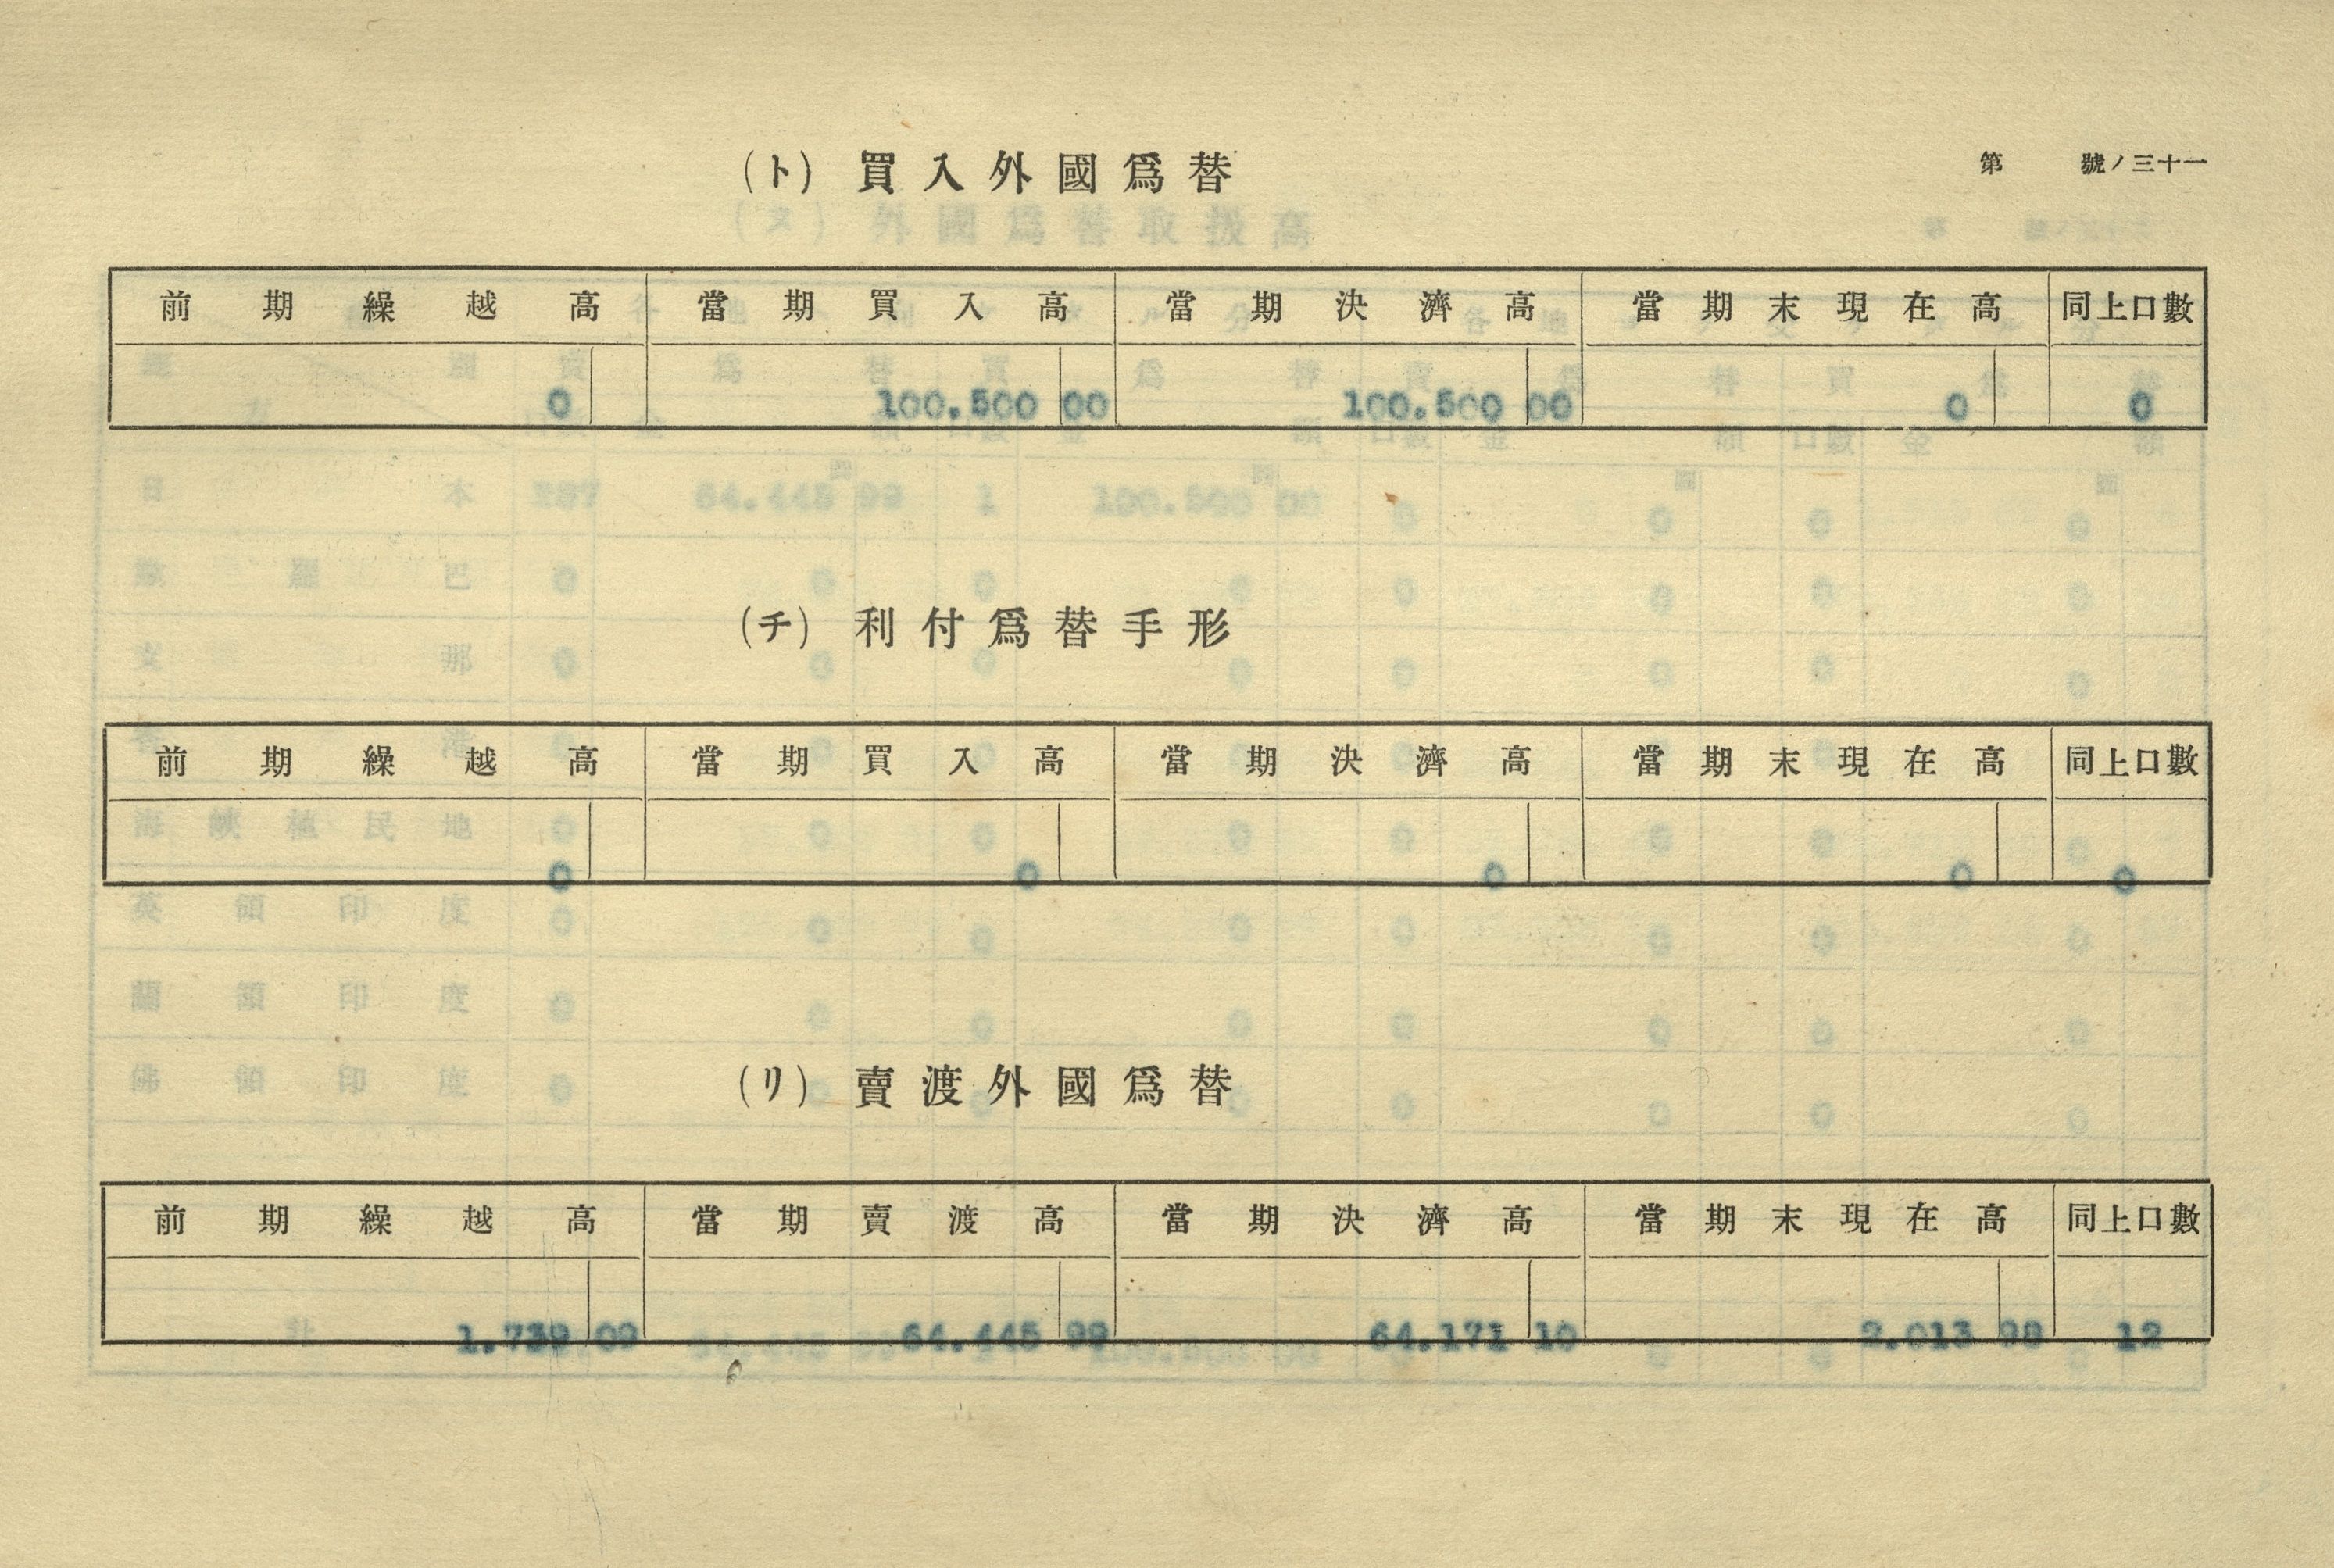 第 號ノ三十一
(ト) 買入外國爲替
前期繰越高 當期買入高 當期決濟高 當期末現在高 同上口數
0 100.500 00 100.500 00 0 0
(チ) 利付爲替手形
前期繰越高 當期買入高 當期決濟高 當期末現在高 同上口數
0 0 0 0 0
(リ) 賣渡外國爲替
前期繰越高 當期賣渡高 當期決濟高 當期末現在高 同上口數
1.739 09 64.445 99 64.171 10 2.013 98 12